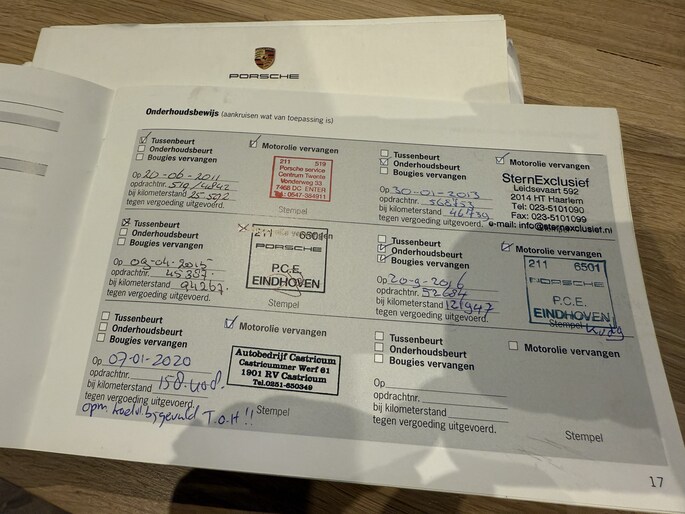 PORSCHE
Onderhoudsbewijs (aankruisen wat van toepassing is)
Tussenbeurt
Onderhoudsbeurt
Bougies vervangen
Motorolie vervangen
Op 20-06-2011
opdrachtnr. 519/44842
bij kilometerstand 25.592
tegen vergoeding uitgevoerd.
211 519
Porsche service
Centrum Twente
Vonderweg 33
7468 DC ENTER
Tel: 0547-384911
Stempel
Tussenbeurt
Onderhoudsbeurt
Bougies vervangen
Motorolie vervangen
Op 30-01-2013
opdrachtnr. 568753
bij kilometerstand 46739
tegen vergoeding uitgevoerd.
SternExclusief
Leidsevaart 592
2014 HT Haarlem
Tel: 023-5101090
Fax: 023-5101099
e-mail: info@sternexclusief.nl
Stempel
Tussenbeurt
Onderhoudsbeurt
Bougies vervangen
Op 09-04-2015
opdrachtnr. 45397
bij kilometerstand 94267
tegen vergoeding uitgevoerd.
211 6501
PORSCHE
P.C.E.
EINDHOVEN
Stempel
Tussenbeurt
Onderhoudsbeurt
Bougies vervangen
Motorolie vervangen
Op 20-9-2016
opdrachtnr. 52684
bij kilometerstand 121947
tegen vergoeding uitgevoerd.
211 6501
PORSCHE
P.C.E.
EINDHOVEN
Stempel
Tussenbeurt
Onderhoudsbeurt
Bougies vervangen
Motorolie vervangen
Op 07-01-2020
opdrachtnr.
bij kilometerstand 158.408
tegen vergoeding uitgevoerd.
opm.
T.O.H!!
Autobedrijf Castricum
Castricummer Werf 61
1901 RV Castricum
Tel.0251-650349
Stempel
Tussenbeurt
Onderhoudsbeurt
Bougies vervangen
Motorolie vervangen
Op
opdrachtnr.
bij kilometerstand
tegen vergoeding uitgevoerd.
Stempel
17